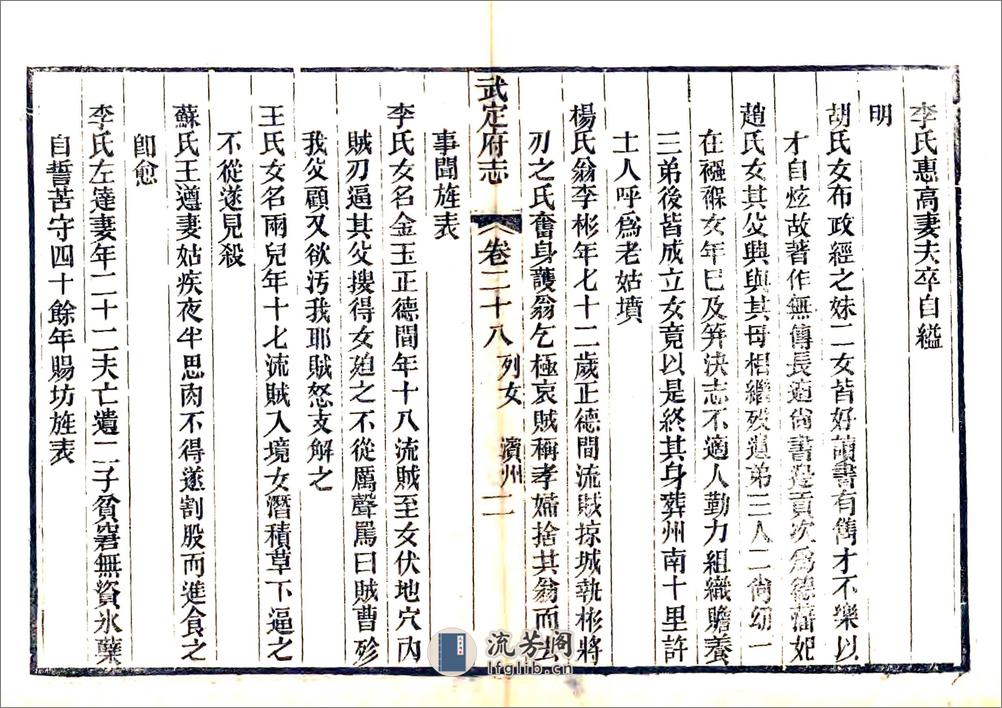 李氏惠高妻夫卒自縊
明
胡氏女布政經之妹二女皆好讀書有雋才不樂以
才自炫故著作無傳長適尚書邊貢次爲德藩妃
趙氏女其父興與其母相繼歿遺弟三人二尚幼一
在襁褓女年已及笄決志不適人勤力組織贍養
三弟後皆成立女竟以是終其身葬州南十里許
土人呼爲老姑墳
楊氏翁李彬年七十二歲正德間流賊掠城執彬將
刃之氏奮身護翁乞極哀賊稱孝婦捨其翁而去
武定府志 卷二十八 列女 濱州 二
事聞旌表
李氏女名金玉正德間年十八流賊至女伏地穴內
賊刃逼其父搜得女廹之不從厲聲罵曰賊曹殄
我父顧又欲汚我耶賊怒支解之
王氏女名雨兒年十七流賊入境女潛積草下逼之
不從遂見殺
蘇氏王遵妻姑疾夜半思肉不得遂割股而進食之
卽愈
李氏左達妻年二十二夫亡遺二子貧窘無資氷蘗
自誓苦守四十餘年賜坊旌表
流芳阁
lfglib.cn